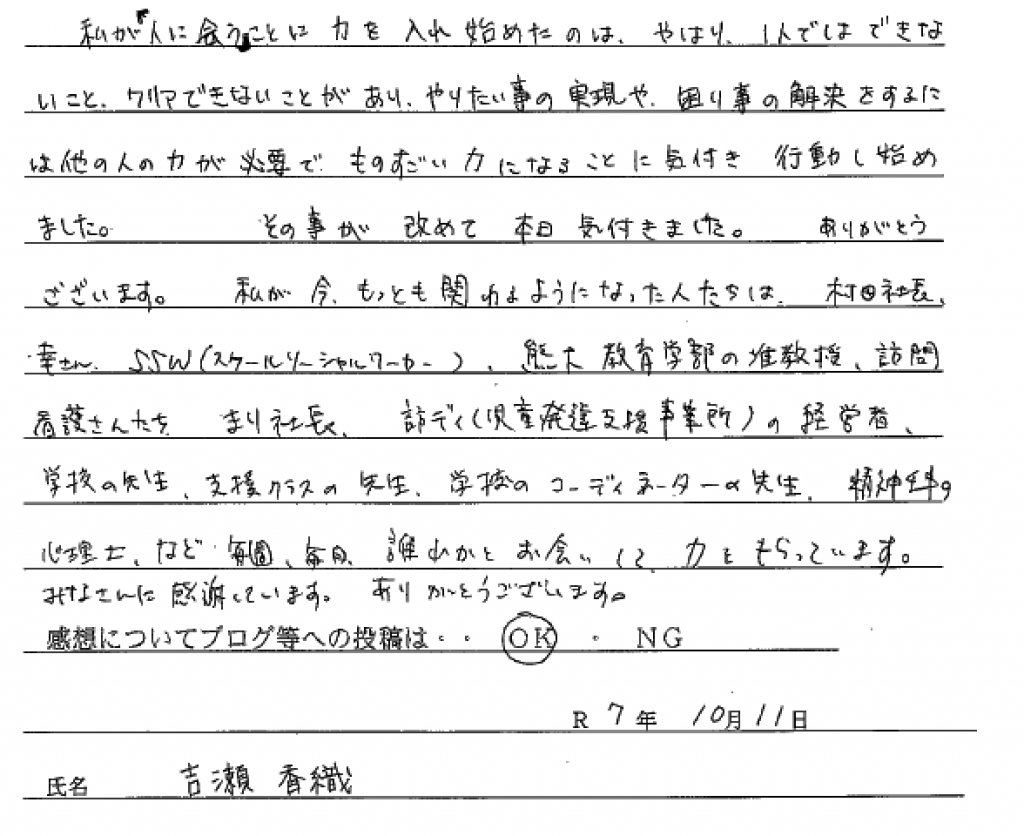 私が人に会うことに力を入れ始めたのは、やはり、1人ではできな
いこと、クリアできないことがあり、やりたい事の実現や、困り事の解決をするに
は他の人の力が必要で ものすごい力になることに気付き 行動し始め
ました。 その事が 改めて 本日 気付きました。 ありがとう
ございます。 私が今、もっとも関わるようになった人たちは、村田社長、
幸さん、SSW(スクールソーシャルワーカー)、熊大 教育学部の准教授、訪問
看護さんたち、まり社長、 デイ(児童発達支援事業所)の経営者、
学校の先生、支援クラスの先生、学校のコーディネーターの先生、精神科の
心理士、など 毎週、毎日、誰れかとお会いして、力をもらっています。
みなさんに感謝しています。 ありがとうございます。
感想についてブログ等への投稿は・・ OK ・ NG
R 7年 10月11日
氏名 吉瀬 香織